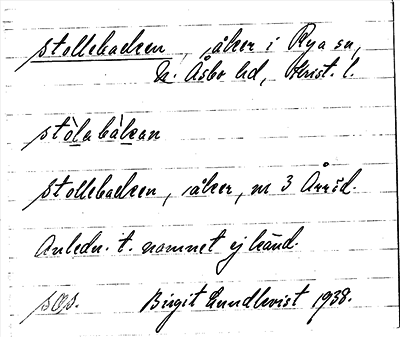 Stollebacken, åker i Rya sn,
N. Åsbo hd, Krist. l.
stòlabàkan
Stollebacken, åker, nr 3 Årröd.
Anledn. t. namnet ej känd.
Birgit Lundkvist 1938.